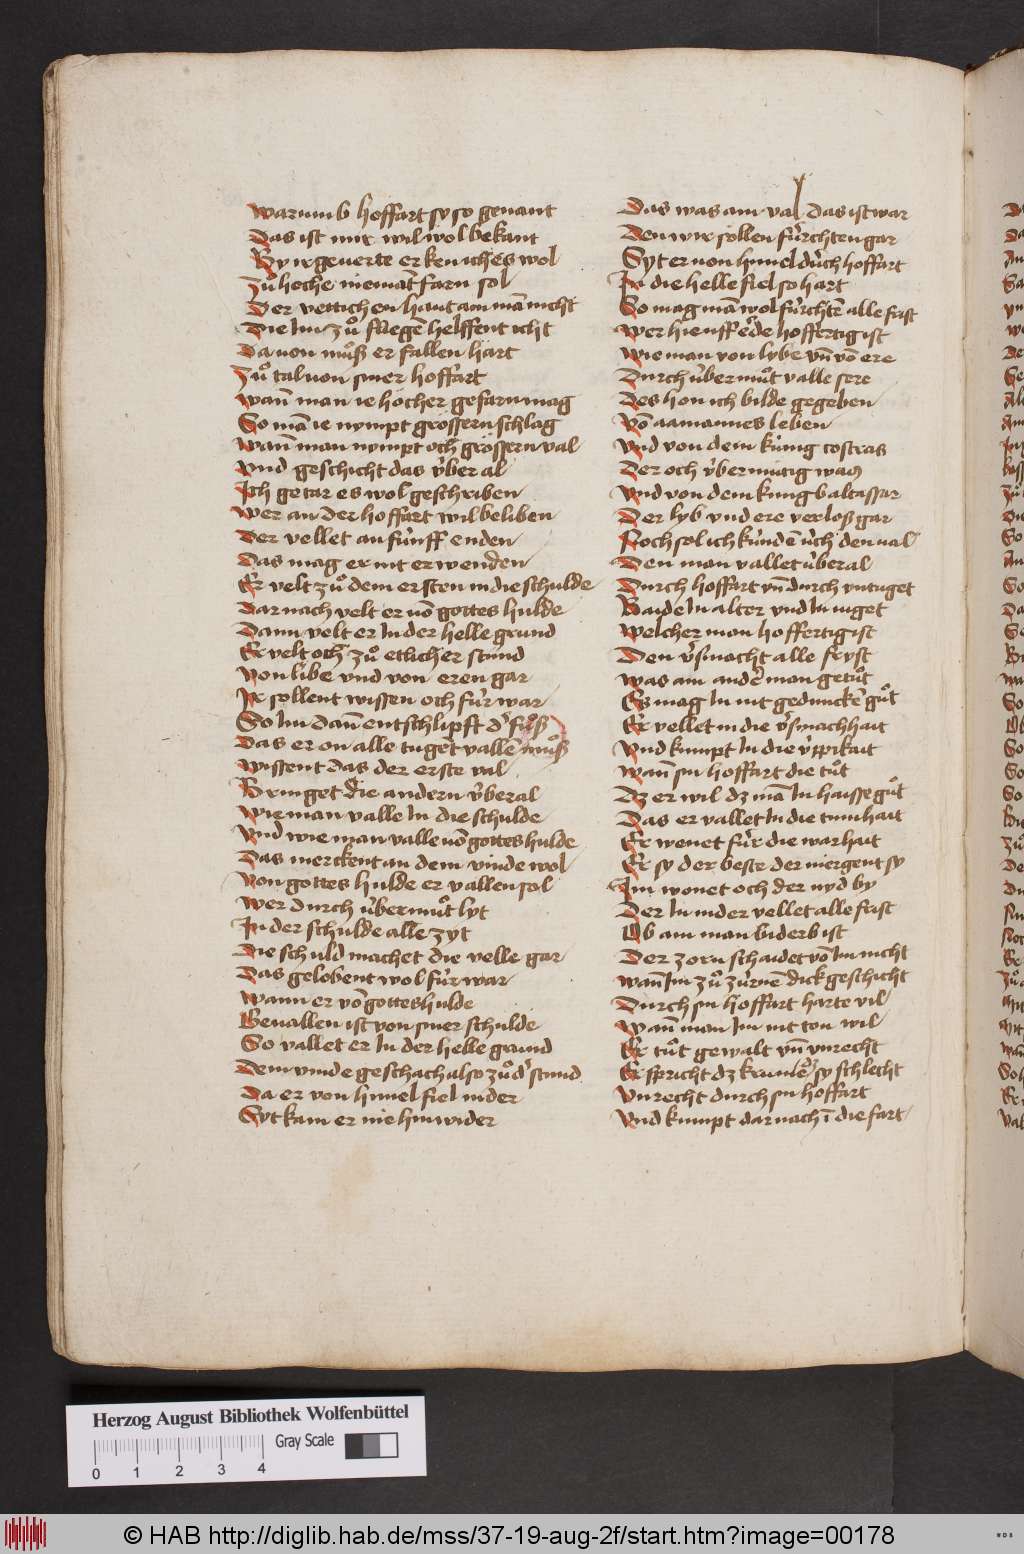 Warumb hoffart sy so genant
Das ist mir wil wol bekant
By ir geuerte erken ich es wol
Zů hoche niemāt farn sol
Der vettichen haut am mā nicht
Die Im zů fliegē helffent icht
Da von můß er fallen hart
Zů tal von siner hoffart
Wañ man ie höcher gefarn mag
So mā ie nympt grossern schlag
Wañ man nympt och grössern val
Vnd geschicht das v̓ber al
Ich getar es wol geschriben
Wer an der hoffart wil beliben
Der vellet an fünff enden
Das mag er nit erwenden
Er velt zů dem ersten in die schulde
Dar nach velt er võ gottes hulde
Dann velt er In der helle grund
Er velt och zů etlicher stund
Von libe vnd von eren gar
Ir sollent wissen och fur war
So Im dañ entschlipft d' fůß
Das er on alle tuget vallē můß
Wissent das der erste val
Bringet die andern v̓ber al
Wie man valle In die schulde
Vnd wie man valle võ gottes hulde
Das merckent an dem vinde wol
Von gottes hulde er vallen sol
Wer durch ubermůt lyt
In der schulde alle zyt
Die schuld machet die velle gar
Das gelobent wol für war
Wann er võ gottes hulde
Geuallen ist von siner schulde
So vallet er In der helle grund
Dem vinde geschach also zů d' stund
Da er von himel fiel in der
Syt kam er nie hin wider
Das was am val das ist war
Den wir sollen fürchten gar
Syt er von himel durch hoffart
In die helle fiel so hart
So mag mā wol fürchtē alle frist
Wer hie vff erde hoffertig ist
Wie man von lybe vñ võ ere
Durch übermůt valle sere
Des hon ich bilde gegeben
Võ aamannes leben
Vnd von dem kung costras
Der och v̓bermütig was
Vnd von dem kung baltassar
Der lyb vnd ere verloß gar
Noch sol ich kündē üch den val
Den man vallet überal
Durch hoffart vñ durch vntuget
Baide In alter vnd In iuget
Welcher man hoffertig ist
Den v̓smacht alle fryst
Was am ander man getůt
Es mag In nit geduncke gůt
Er vellet in die v̓smachhait
Vnd kumpt In die v̓ppikait
Wañ sin hoffart die tůt
Dz er wil dz mā In haisse gůt
Das er vallet In die tumhait
Er wenet für die warhait
Er sy der beste der niergent sy
Im wonet och der nyd by
Der In nider vellet alle frist
Ob am man biderb ist
Der zorn schaidet võ Im nicht
Wañ Im zů zürnē dick geschicht
Durch sin hoffart harte vil
Wañ man Im nit ton wil
Er tůt gewalt vñ vnrecht
Er spricht dz krumē dz sy schlecht
Vnrecht durch sin hoffart
Vnd kumpt dar nach ī die fart
Herzog August Bibliothek Wolfenbüttel
Gray Scale
0 1 2 3 4
© HAB http://diglib.hab.de/mss/37-19-aug-2f/start.htm?image=00178